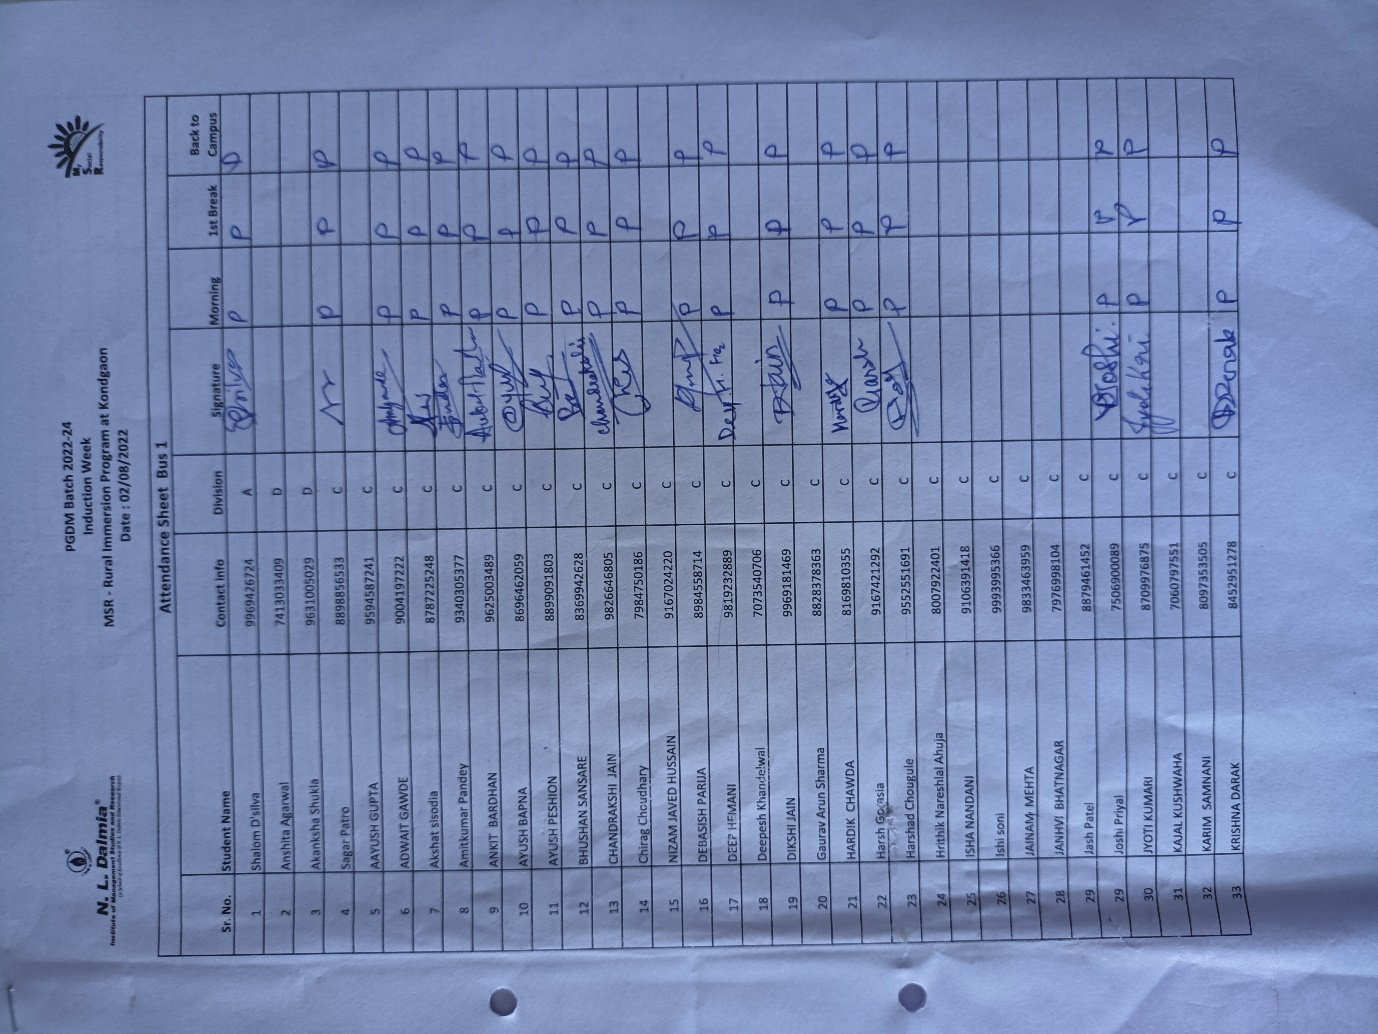 N. L. Dalmia
Institute of Management Studies and Research
M.
Social
Responsibility
PGDM Batch 2022-24
Induction Week
MSR - Rural Immersion Program at Kondgaon
Date : 02/08/2022
Attendance Sheet Bus 1
Sr. No. Student Name Contact Info Division Signature Morning 1st Break Back to Campus
1 Shalom D'silva 9969426724 A P P P
2 Anshita Agarwal 7413033409 D
3 Akanksha Shukla 9631005029 D
4 Sagar Patro 8898856533 C P P P
5 AAYUSH GUPTA 9594587241 C
6 ADWAIT GAWDE 9004197222 C P P P
7 Akshat sisodia 8787225248 C P P P
8 Amitkumar Pandey 9340305377 C P P P
9 ANKIT BARDHAN 9625003489 C P P P
10 AYUSH BAPNA 8696462059 C P P P
11 AYUSH PESHION 8899091803 C P P P
12 BHUSHAN SANSARE 8369942628 C P P P
13 CHANDRAKSHI JAIN 9826646805 C P P P
14 Chirag Choudhary 7984750186 C P P P
15 NIZAM JAVED HUSSAIN 9167024220 C
16 DEBASISH PARIJA 8984558714 C P P P
17 DEEP HEMANI 9819232889 C P P P
18 Deepesh Khandelwal 7073540706 C
19 DIKSHI JAIN 9969181469 C P P P
20 Gaurav Arun Sharma 8828378363 C
21 HARDIK CHAWDA 8169810355 C P P P
22 Harsh Govasia 9167421292 C P P P
23 Harshad Chougule 9552551691 C P P P
24 Hrithik Nareshlal Ahuja 8007922401 C
25 ISHA NANDANI 9106391418 C
26 Ishi soni 9993995366 C
27 JAINAM MEHTA 9833463959 C
28 JANHVI BHATNAGAR 7976998104 C
29 Jash Patel 8879461452 C
29 Joshi Priyal 7506900089 C P P P
30 JYOTI KUMARI 8709976875 C P P P
31 KAJAL KUSHWAHA 7060797551 C
32 KARIM SAMNANI 8097353505 C
33 KRISHNA DARAK 8452951278 C P P P